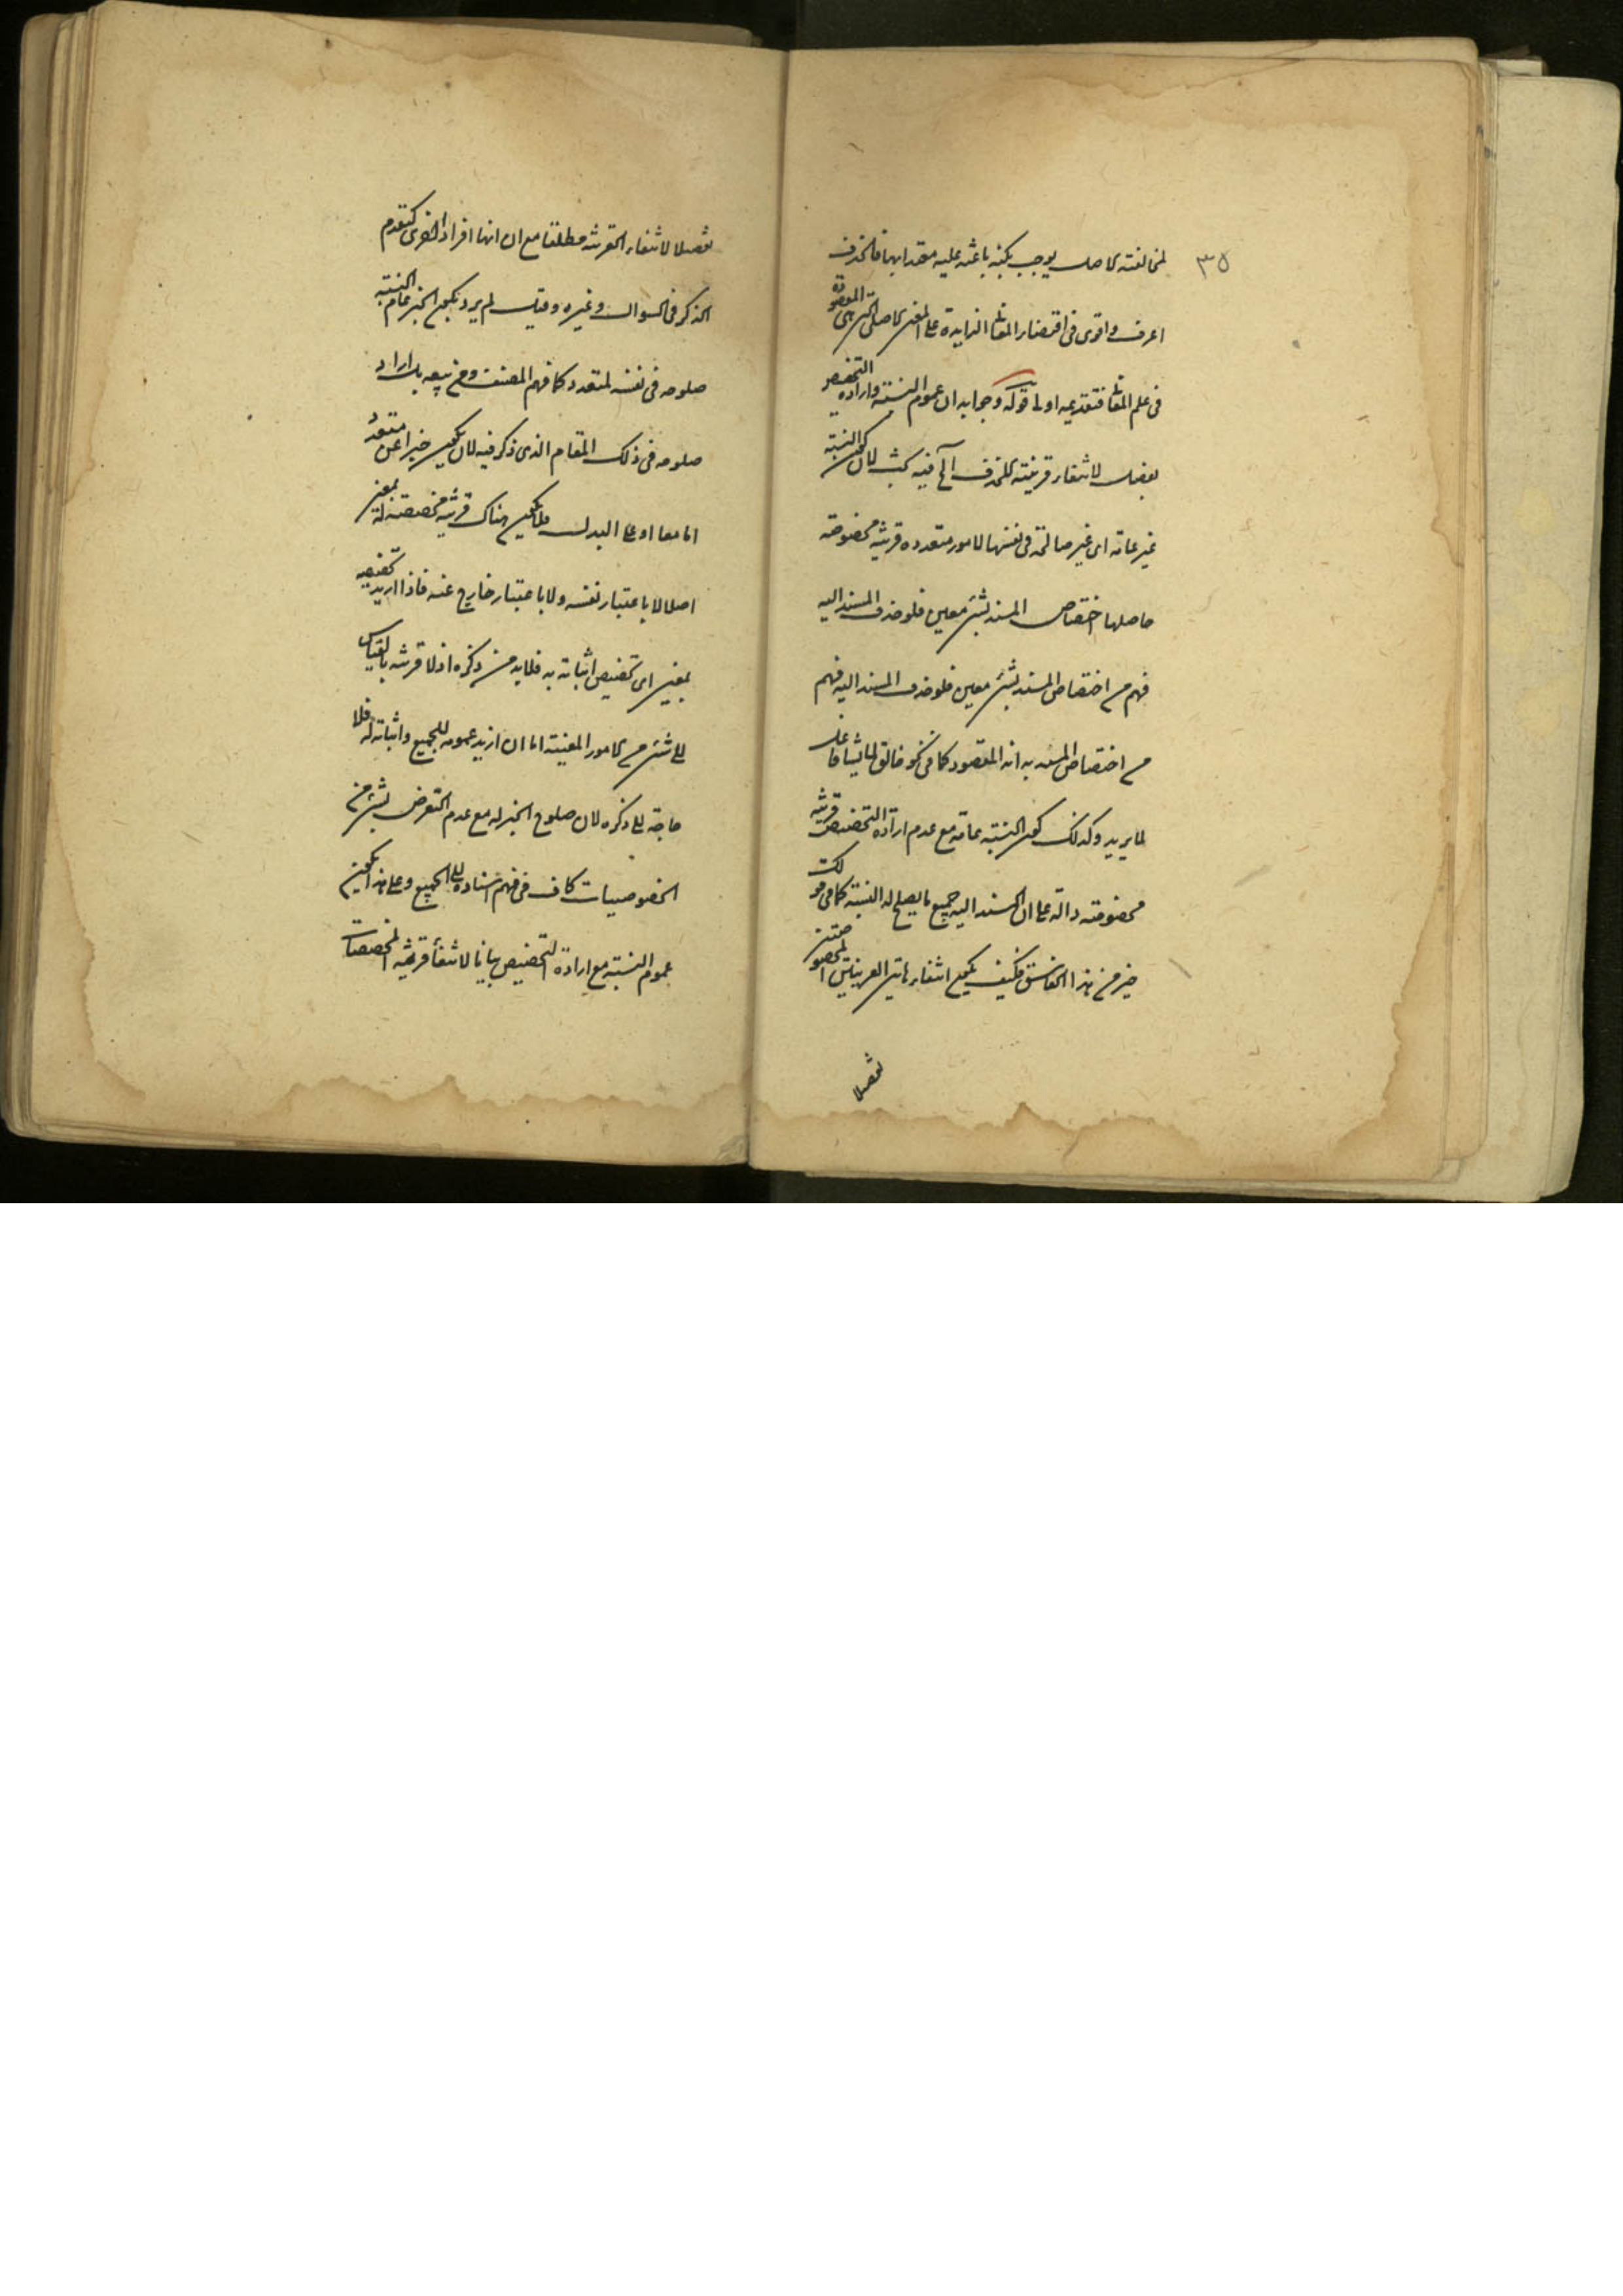 ٣٥
لمخالفته لاصل يوجب نكتة باعثة عليه مقدا بها فالحذف
اعرف واقوى في اقتضاء المعاني الزايدة على المعنى الاصلي التي هي المقصودة
في علم المعاني فتقديمه اولى قوله وجوابه ان عموم النسبة وارادة التخصيص
تفصيل لانتفاء قرينة للحذف الخ فيه بحث لان كون النسبة
غير عامة اى غير صالحة في نفسها لامور متعدده قرينة مخصوصة
حاصلها اختصاص المسند بشئ معين فلو حذف المسند اليه
فهم من اختصاص المسند بشئ معين فلو حذف المسند اليه فهم
من اختصاص المسند به انه المقصود كما في نحو خالق لما يشاء فاعل
لما يريد وكذلك كون النسبة عامة مع عدم ارادة التخصيص قرينة
مخصوصة دالة على ان المسند اليه جميع ما يصلح له النسبة كما في قولك
خير من هذا الفاسق فكيف يكون انتفاء هاتين القرينتين المخصوصتين
تفصيلا
تفصيلا لانتفاء القرينة مطلقا مع ان لها افراد اخرى كتقدم
الذكر في السوال وغيره وقيل لم يرد بكون الخبر عام النسبة
صلوحه في نفسه لمتعدد كما فهم المصنف ومن تبعه بل اراد
صلوحه في ذلك المقام الذى ذكر فيه لان يكون خبرا عن متعدد
اما معا او على البدل فلا يكون هناك قرينة مخصصة له بمعين
اصلا لا باعتبار نفسه ولا باعتبار خارج عنه فاذا اريد تخصيصه
بمعين اى تخصيص اثباته به فلابد من ذكره اذ لا قرينة بالقياس
الى شئ من الامور المعينة اما ان اريد عمومه للجميع واثباته له فلا
حاجة الى ذكره لان صلوح الخبر له مع عدم التعرض لشئ من
الخصوصيات كاف في فهم اسناده الى الجميع وعلى هذا يكون
عموم النسبة مع ارادة التخصيص بيانا لانتفاء قرينة المخصصات